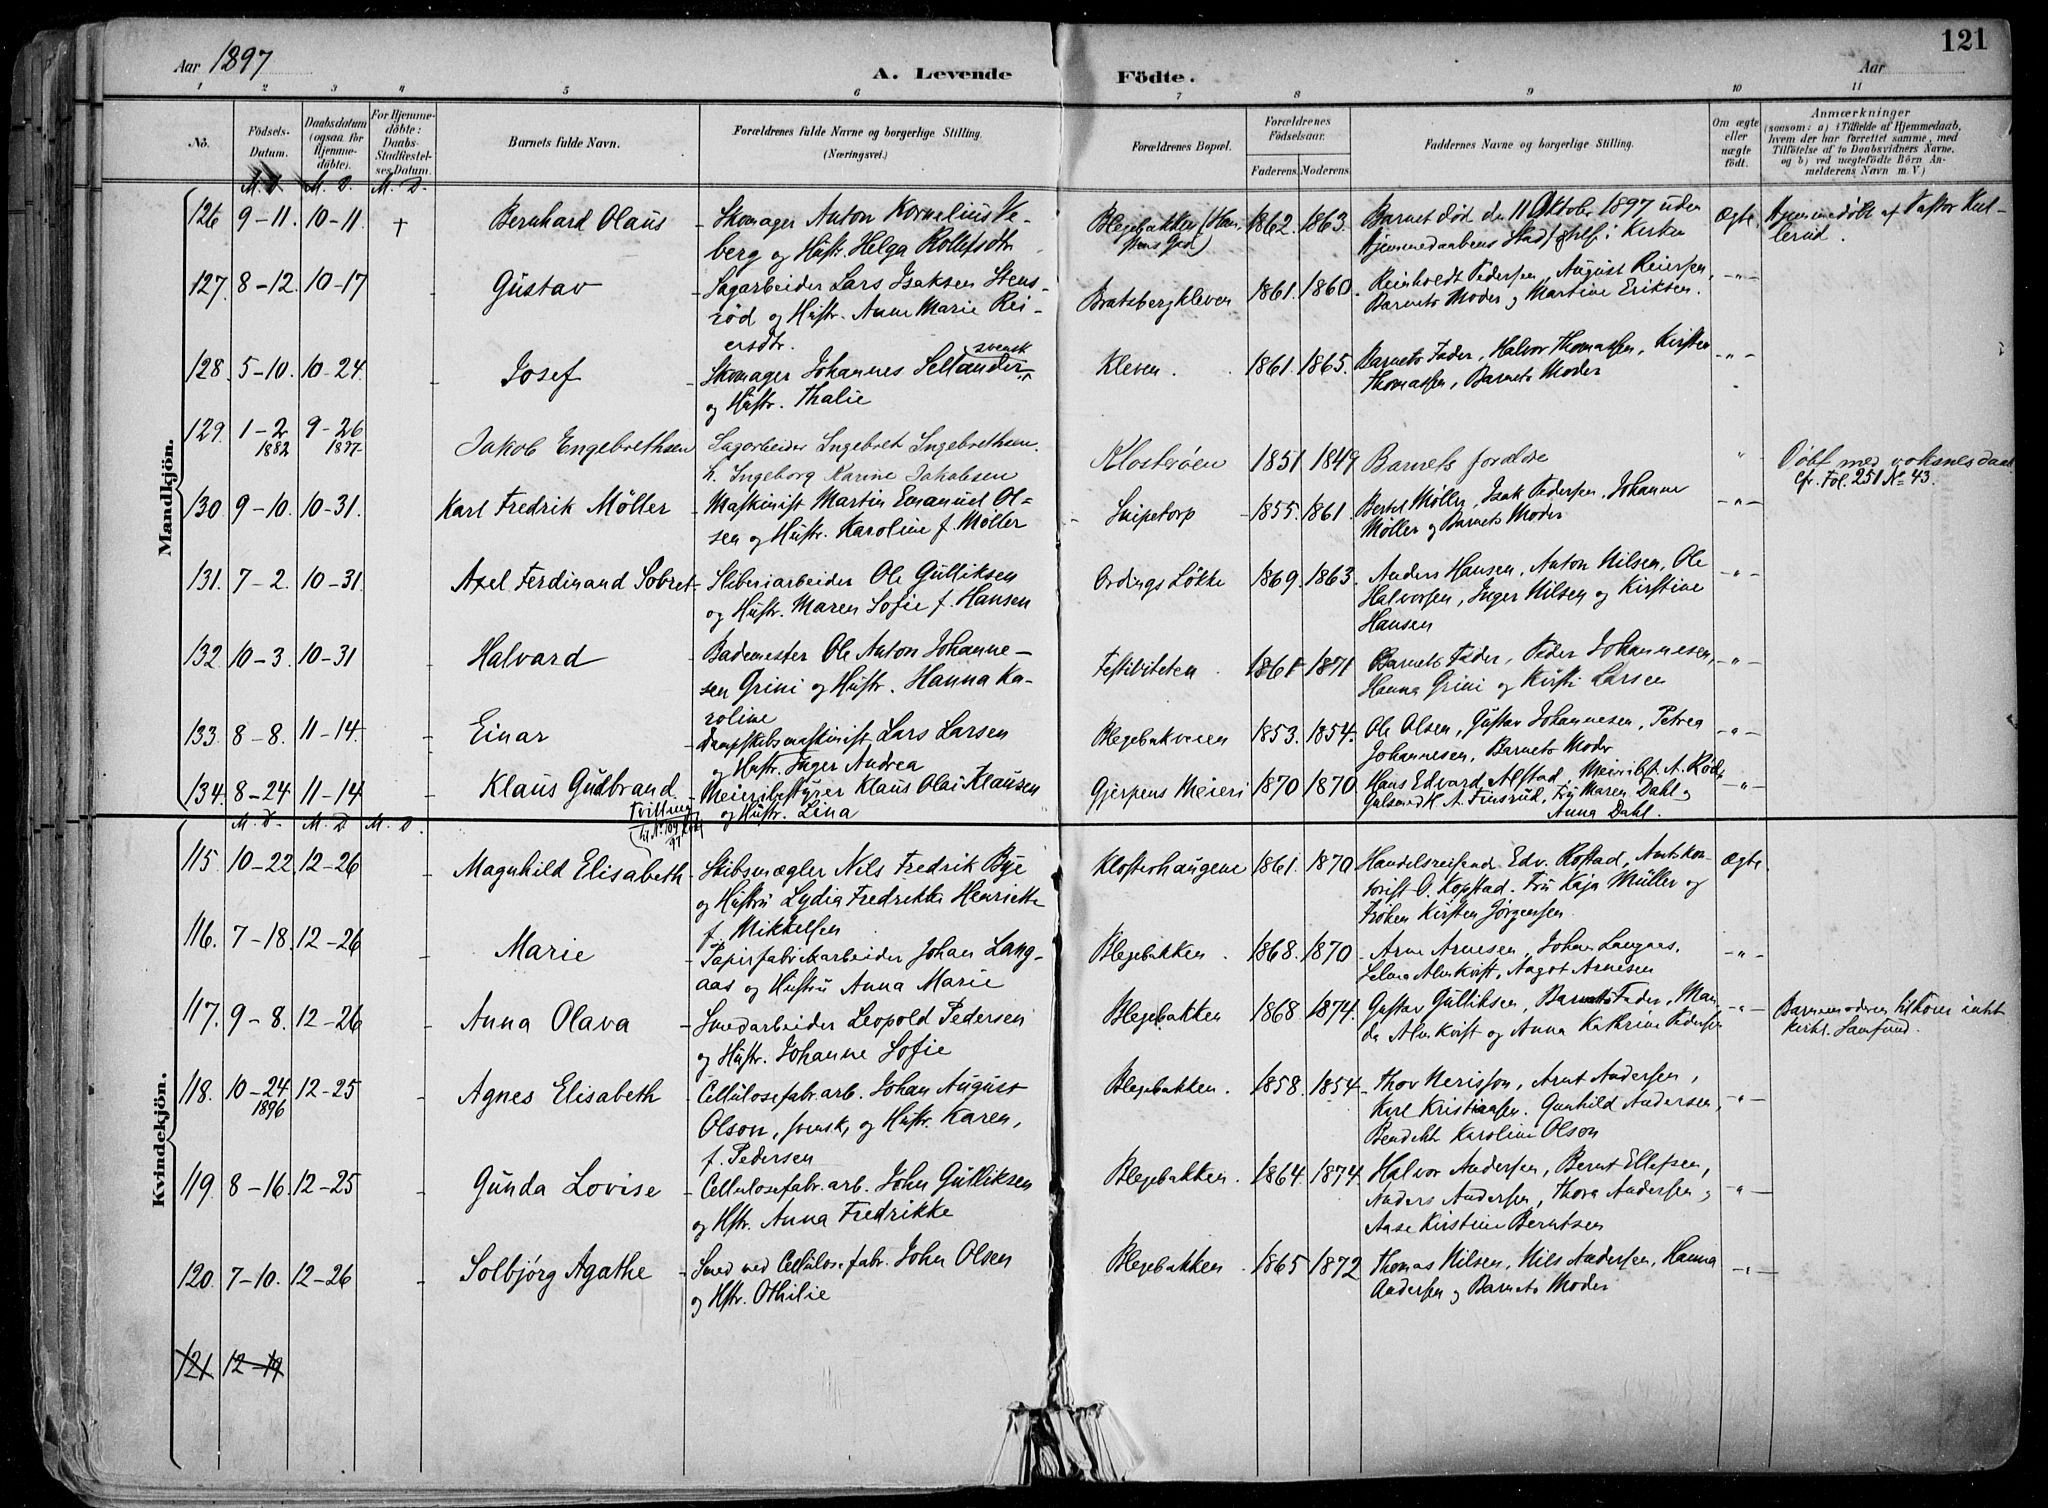 121
Aar 1897
A. Levende
Födte.
Aar
1 2 3 4 5 6 7 8 9 10 11
No.
Födsels-Datum.
Daabsdatum (ogsaa for Hjemmedöbte).
For Hjemmedöbte: Daabs-Stadfæstelses Datum.
Barnets fulde Navn.
Forældrenes fulde Navne og borgerlige Stilling.
(Næringsvei.)
Forældrenes Bopæl.
Forældrenes Födselsaar.
Faderens. Moderens.
Faddernes Navne og borgerlige Stilling.
Om ægte eller uægte födt.
Anmærkninger
(saasom: a) i Tilfælde af Hjemmedaab,
hvem der har forrettet samme, med
Tilföielse af to Daabsvidners Navne,
og b) ved uægtefödte Börn An-
melderens Navn m. V.)
M. D. M. D. M. D.
Mandkjön.
126 9-11. 10-11. + Bernhard Olaus - Skomager Anton Kornelius Ve- Blegebakken 1862. 1863. Barnet död den 11 Oktober 1897 uden Ægte. Hjemmedöbt af Pastor Kul-
berg og Hustr. Helga Rollefsdtr Hjemmedaabens Stadf. i Kirken lerud.
127. 8-12. 10-17 - Gustav - Sagarbeider Lars Isaksen Stens- Bratsbergkleven 1861. 1860. Reinholdt Pedersen, August Reiersen, -"-
röd og Hustr. Anne Marie Rei- Barnets Moder og Martine Eriksen.
ersdtr.
128. 5-10. 10-24. - Josef - Skomager Johannes Sellander svensk Kleven. 1861. 1865. Barnets Fader, Halvor Thomassen, Kirsten -"-
og Hustr. Thalie Thomassen, Barnets Moder
129. 1-2 1882 9-26 1897 Jakob Engebrethsen Sagarbeider Ingebret Ingebrethsen. Klosterøen 1851 1849 Barnets forældre " Döbt med voksnes daab
h. Ingeborg Karine Jakobsen cfr. Fol. 251 No 43.
130 9-10. 10-31. Karl Fredrik Möller - Maskinist Martin Emanuel Ol- Snipetorp 1855. 1861. Bertel Møller, Isak Pedersen, Johanne -"-
sen og Hustr. Karoline f. Møller Møller og Barnets Moder
131. 7-2. 10-31. Axel Ferdinand Sobret - Sliberiarbeider Ole Gulliksen Ordings Løkke 1869. 1863. Anders Hansen, Anton Nilsen, Ole -"-
og Hustr. Maren Sofie f. Hansen Halvorsen, Inger Nilsen og Kirstine
Hansen
132 10-3. 10-31 - Halvard Bademester Ole Anton Johanne- Festiviteten. 1861 1871 Barnets Fader, Peder Johannesen, -"-
sen Grini og Hustr. Hanna Ka- Hanna Grini og Kirsti Larsen
roline
133. 8-8. 11-14. - Einar - Dampskibsmaskinist Lars Larsen Blegebakveien 1853. 1854. Ole Olsen, Gustav Johannesen, Petrea -"-
og Hustr. Inger Andrea Johannesen, Barnets Moder
134. 8-24. 11-14 - Klaus Gudbrand - Meieribestyrer Klaus Olai Klausen Gjerpens Meieri 1870 1870. Hans Edvard Alstad, Meieribst. A. Röd, -"-
og Hustr. Lina Gulsmed K. A. Finsrud, Fru Maren Dahl og
Anna Dahl.
M. D. M. D. M. D.
Kvindekjön.
Tvilling
115. 10-22. 12-26 - Magnhild Elisabeth - Skibsmægler Nils Fredrik Bye Klosterhaugene 1861. 1870. Handelsreisende Edv. Kofstad, Amtskon- Ægte.
og Hustru Lydia Fredrikke Henriette torist O. Kopstad. Fru Kaja Müller og
f. Mikkelsen Frøken Kirsten Jørgensen.
116. 7-18. 12-26 - Marie - Papirfabrikarbeider Johan Lang- Blegebakken. 1868. 1870 Arne Arnesen, Johan Langaas, -"-
aas og Hustru Anna Marie Selma Almkvist, Aagot Arnesen
117. 9-8. 12-26 - Anna Olava - Smedarbeider Leopold Pedersen Blegebakken 1868 1874. Gustav Gulliksen, Barnets Fader, Man- -"- Barnemoderen tilhører intet
og Hustr. Johanne Sofie da Almkvist og Anna Kathrine Pedersen kirkl. Samfund.
118. 10-24 1896 12-25 - Agnes Elisabeth - Cellulosefabr. arb. Johan August Blegebakken. 1858. 1854 Thov Nerisson, Arnt Andersen, -"-
Olson, svensk, og Hustr. Karen, Karl Kristiansen. Gunhild Andersen,
f. Pedersen Bendikte Karoline Olson
119. 8-16. 12-25 - Gunda Lovise - Cellulosefabr. arb. John Gulliksen Blegebakken. 1864. 1874. Halvor Andersen, Bernt Ellefsen, -"-
og Hstr. Anna Fredrikke Anders Andersen, Thora Andersen og
Aase Kirstine Berntsen
120. 7-10. 12-26 - Solbjørg Agathe - Smed ved Cellulosefabr. John Olsen Blegebakken. 1865 1872 Thomas Nilsen, Nils Andersen, Hanna -"-
og Hstr. Othilie Andersen og Barnets Moder
121 12-19